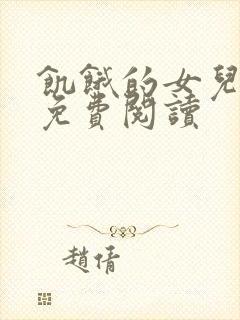 飢餓的女兒
免費閱讀
趙倩